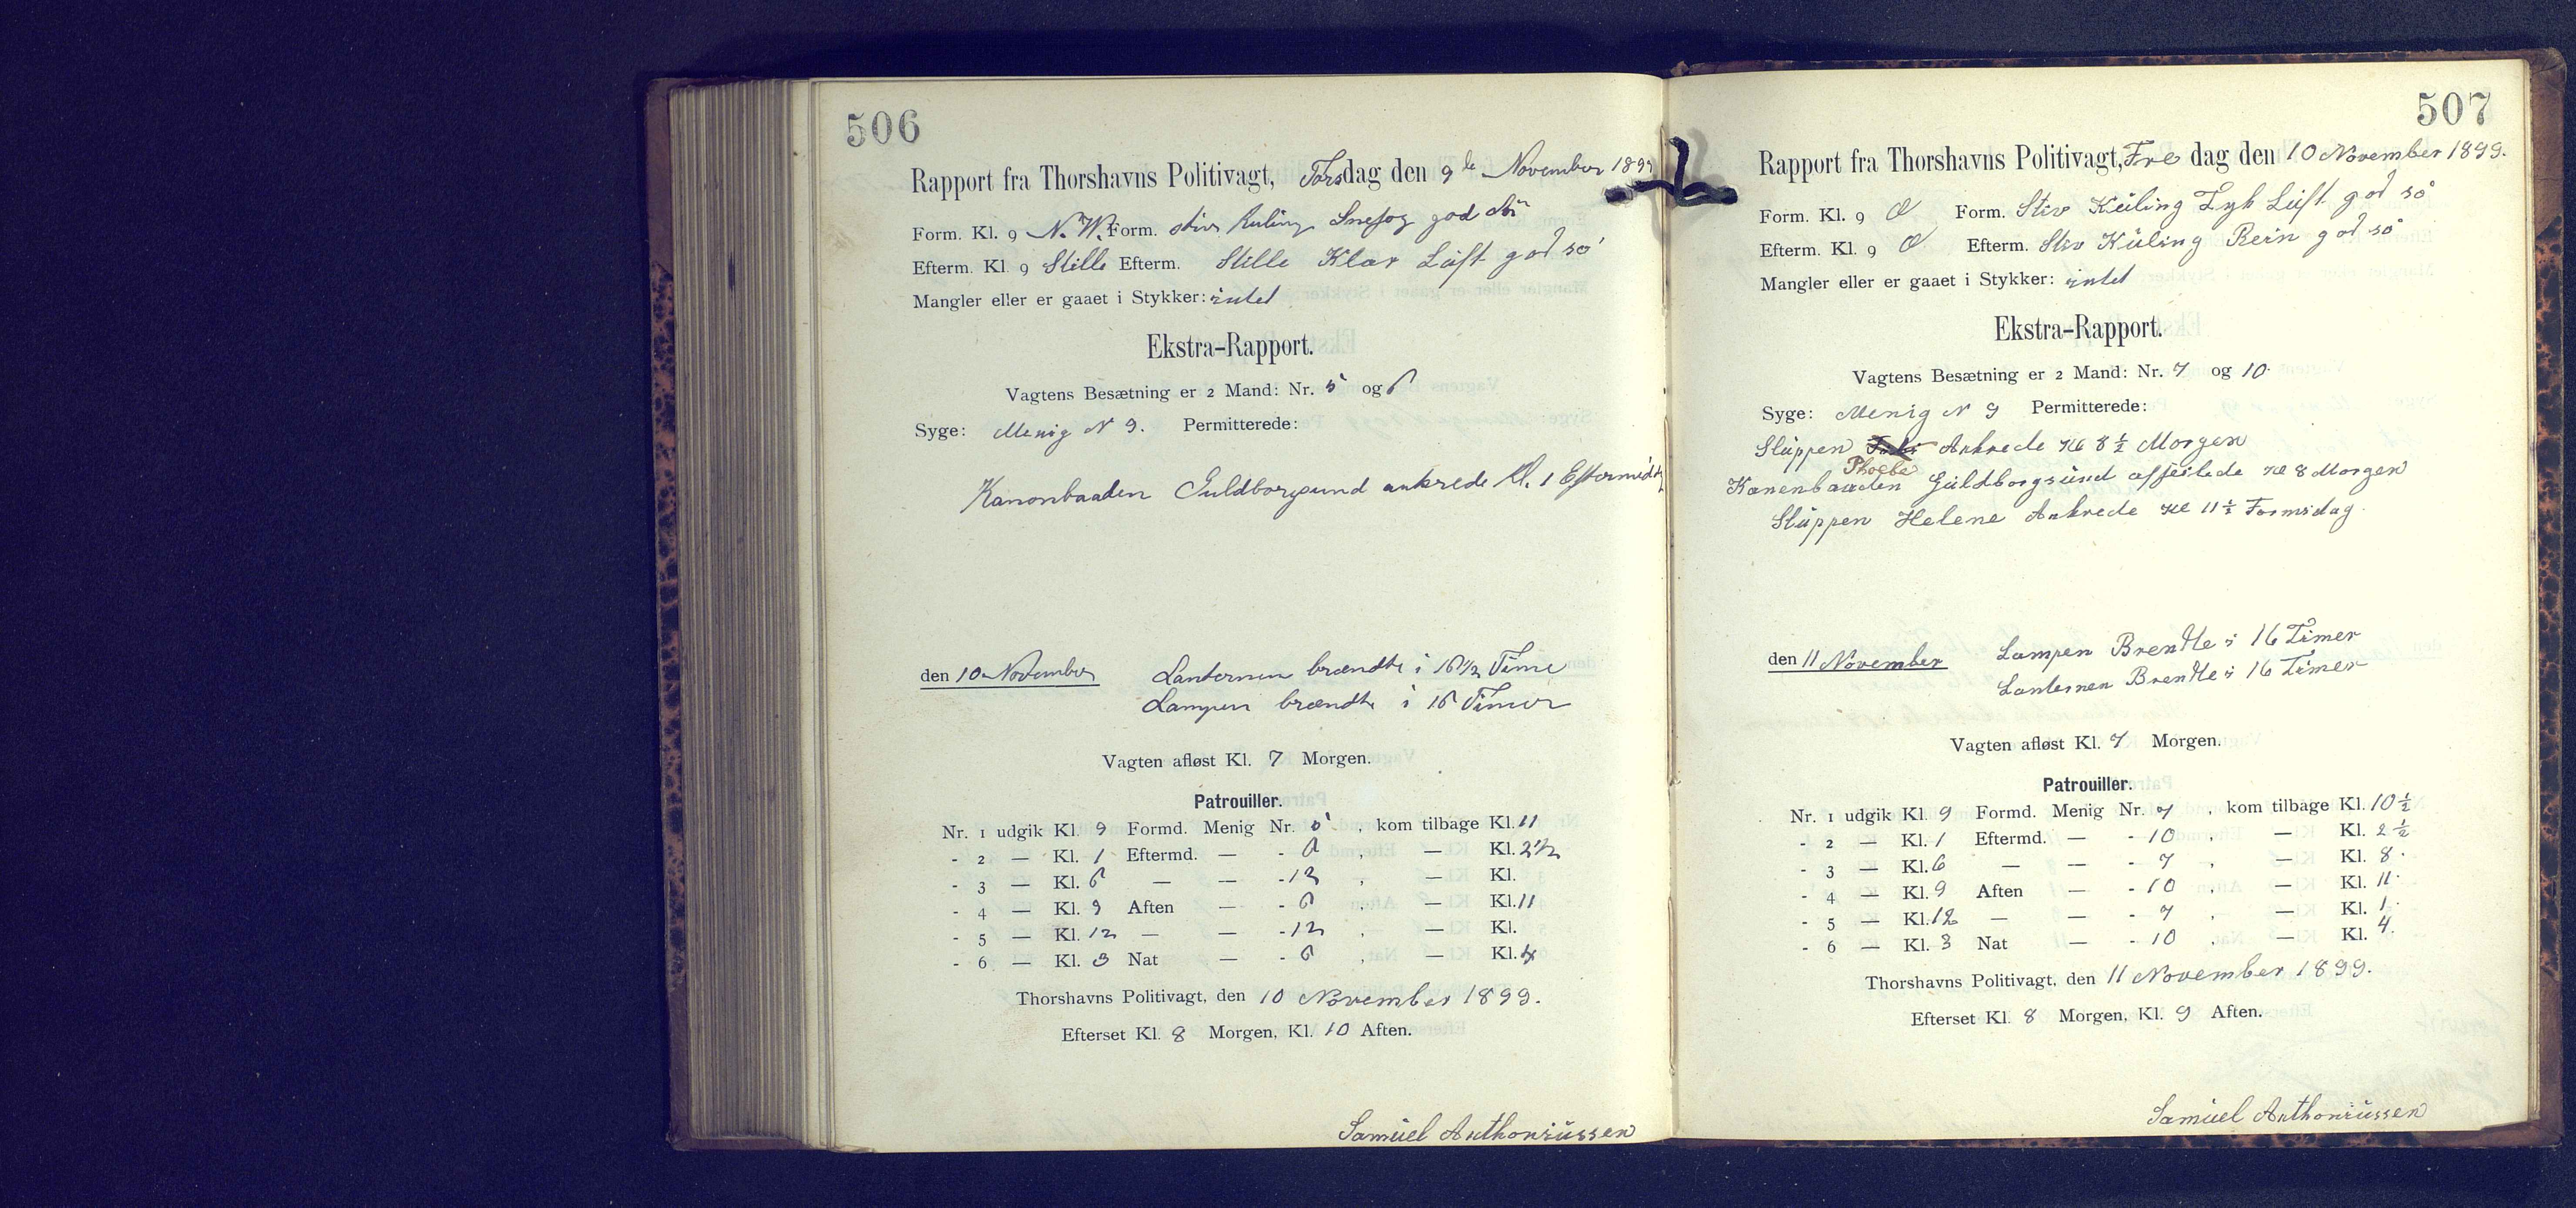 506
Rapport fra Thorshavns Politivagt, Torsdag den 9de November 1899
Form. Kl. 9 N.W. Form. stiv Kuling Snefog god Sö
Efterm. Kl. 9 Stille Efterm. Stille Klar Lúft god sö
Mangler eller er gaaet i Stykker: intet
Ekstra-Rapport.
Vagtens Besætning er 2 Mand: Nr. 5 og 6
Syge: Menig N 9. Permitterede:
Kanonbaaden Guldborgsund ankrede Kl. 1 Eftermidd
den 10 November Lanternen brændte i 16 1/2 Time
Lampen brændte i 16 Timer
Vagten afløst Kl. 7 Morgen.
Patrouiller.
Nr. 1 udgik Kl. 9 Formd. Menig Nr. 5 , kom tilbage Kl. 11
- 2 — Kl. 1 Eftermd. — - 6 , — Kl. 2 1/2
- 3 — Kl. 6 — — - 12 , — Kl.
- 4 — Kl. 9 Aften — - 6 , — Kl. 11
- 5 — Kl. 12 — — - 12 , — Kl.
- 6 — Kl. 3 Nat — - 6 , — Kl. 4
Thorshavns Politivagt, den 10 November 1899.
Efterset Kl. 8 Morgen, Kl. 10 Aften.
Samúel Anthoniússen
507
Rapport fra Thorshavns Politivagt, Fre dag den 10 November 1899.
Form. Kl. 9 Ø Form. Stiv Kúling Tyk Lúft god sö
Efterm. Kl. 9 Ø Efterm. Stiv Kúling Rein god sö
Mangler eller er gaaet i Stykker: intet
Ekstra-Rapport.
Vagtens Besætning er 2 Mand: Nr. 7 og 10.
Syge: Menig N 9 Permitterede:
Slúppen Ankrede Kl 8 1/2 Morgen
Phoebe
Kanenbaaden Gúldborgsúnd affeilede Kl 8 Morgen
Slúppen Helene Ankrede Kl 11 1/2 Formidag.
den 11 November Lampen Brentte i 16 Timer
Lanternen Brentte i 16 Timer
Vagten afløst Kl. 7 Morgen.
Patrouiller.
Nr. 1 udgik Kl. 9 Formd. Menig Nr. 7 , kom tilbage Kl. 10 1/2
- 2 — Kl. 1 Eftermd. — - 10 , — Kl. 2 1/2
- 3 — Kl. 6 — — - 7 , — Kl. 8.
- 4 — Kl. 9 Aften — - 10 , — Kl. 11.
- 5 — Kl. 12 — — - 7 , — Kl. 1.
- 6 — Kl. 3 Nat — - 10 , — Kl. 4.
Thorshavns Politivagt, den 11 November 1899.
Efterset Kl. 8 Morgen, Kl. 9 Aften.
Samúel Anthoniússen